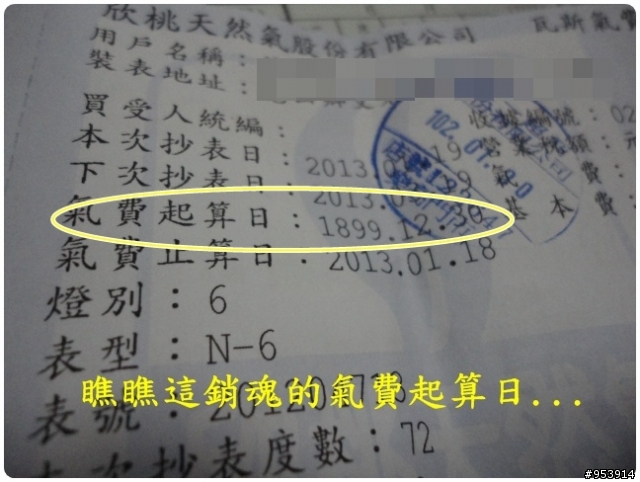 欣桃天然氣股份有限公司 瓦斯氣費
用戶名稱:
裝表地址:
買受人統編: 收據編號:02
本次抄表日:2013.0 19 營業稅額:元
下次抄表日:2013.0 19 氣費:
氣費起算日:1899.12.30 基本費:
氣費止算日:2013.01.18
燈別:6
表型:N-6
瞧瞧這銷魂的氣費起算日...
表號:
次抄表度數:72
#953914